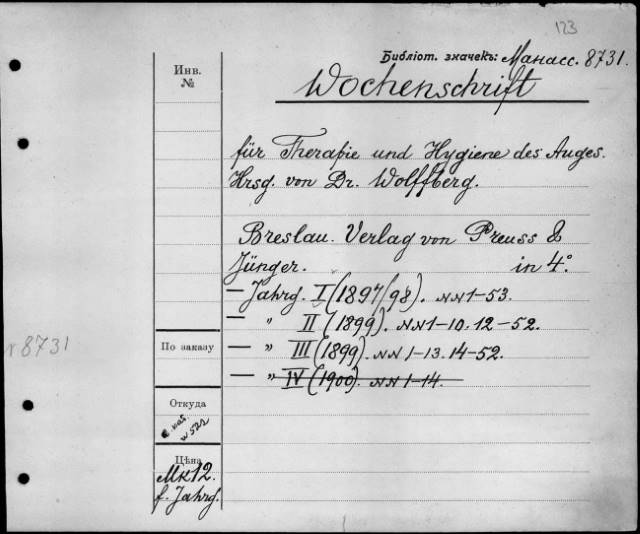 123
Библіот. значекъ: Манасс. 8731.
Инв.
№
Wochenschrift
für Therapie und Hygiene des Auges.
Hrsg. von Dr. Wolffberg.
Breslau. Verlag von Preuss &
Jünger. in 4°.
— Jahrg. I (1897/98). NN 1-53.
— " II (1899). NN 1-10. 12-52.
— " III (1899). NN 1-13. 14-52.
— " IV (1900). NN 1-14.
8731
По заказу
Откуда
Цѣна
Мк 12.
f. Jahrg.